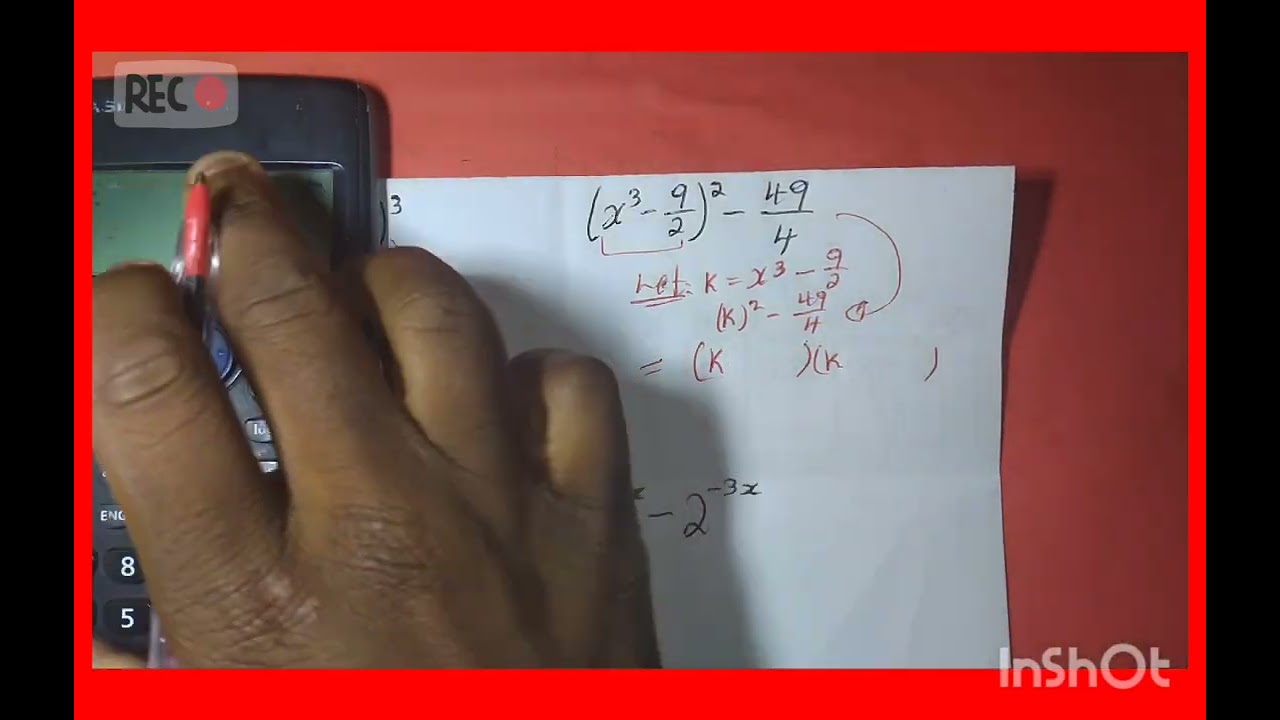 REC
)³
(x³ - 9/2)² - 49/4
Let: K = x³ - 9/2
(K)² - 49/4
= (K )(K )
x - 2^-3x
ENG
8
5
InShOt